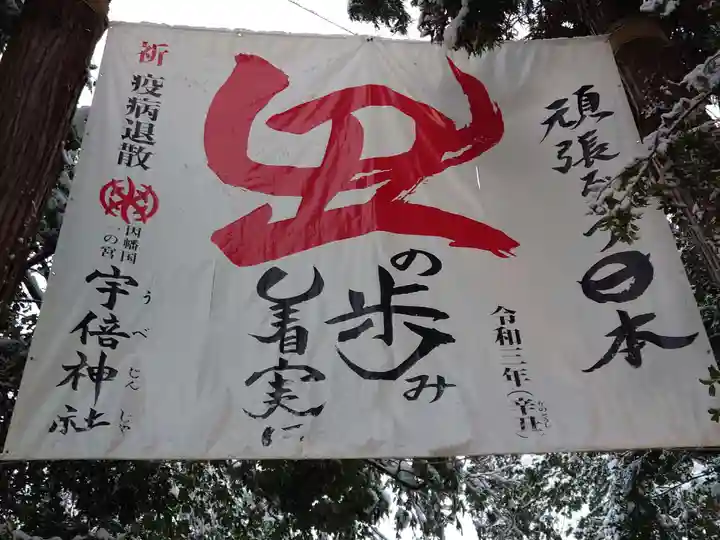 頑張ろう日本
令和三年(辛丑)
かのとうし
丑
の歩み
着実に
祈 疫病退散
因幡国
一の宮
宇倍神社
うべじんじゃ